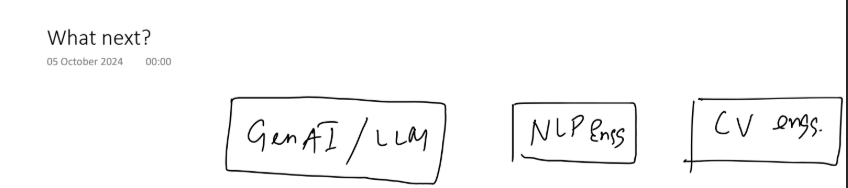 What next?
05 October 2024 00:00
GenAI / LLM NLP Engs CV engs.